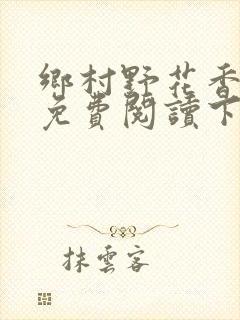 鄉村野花香
免費閱讀下
抹雲客